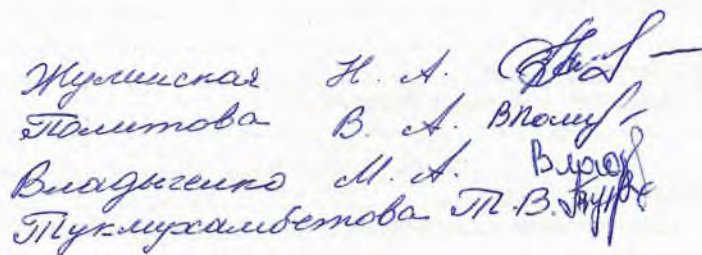 Жулинская Н. А.
Политова В. А. ВПолит
Владыченко М. А. Влад
Тукмухамбетова Т. В. Тук